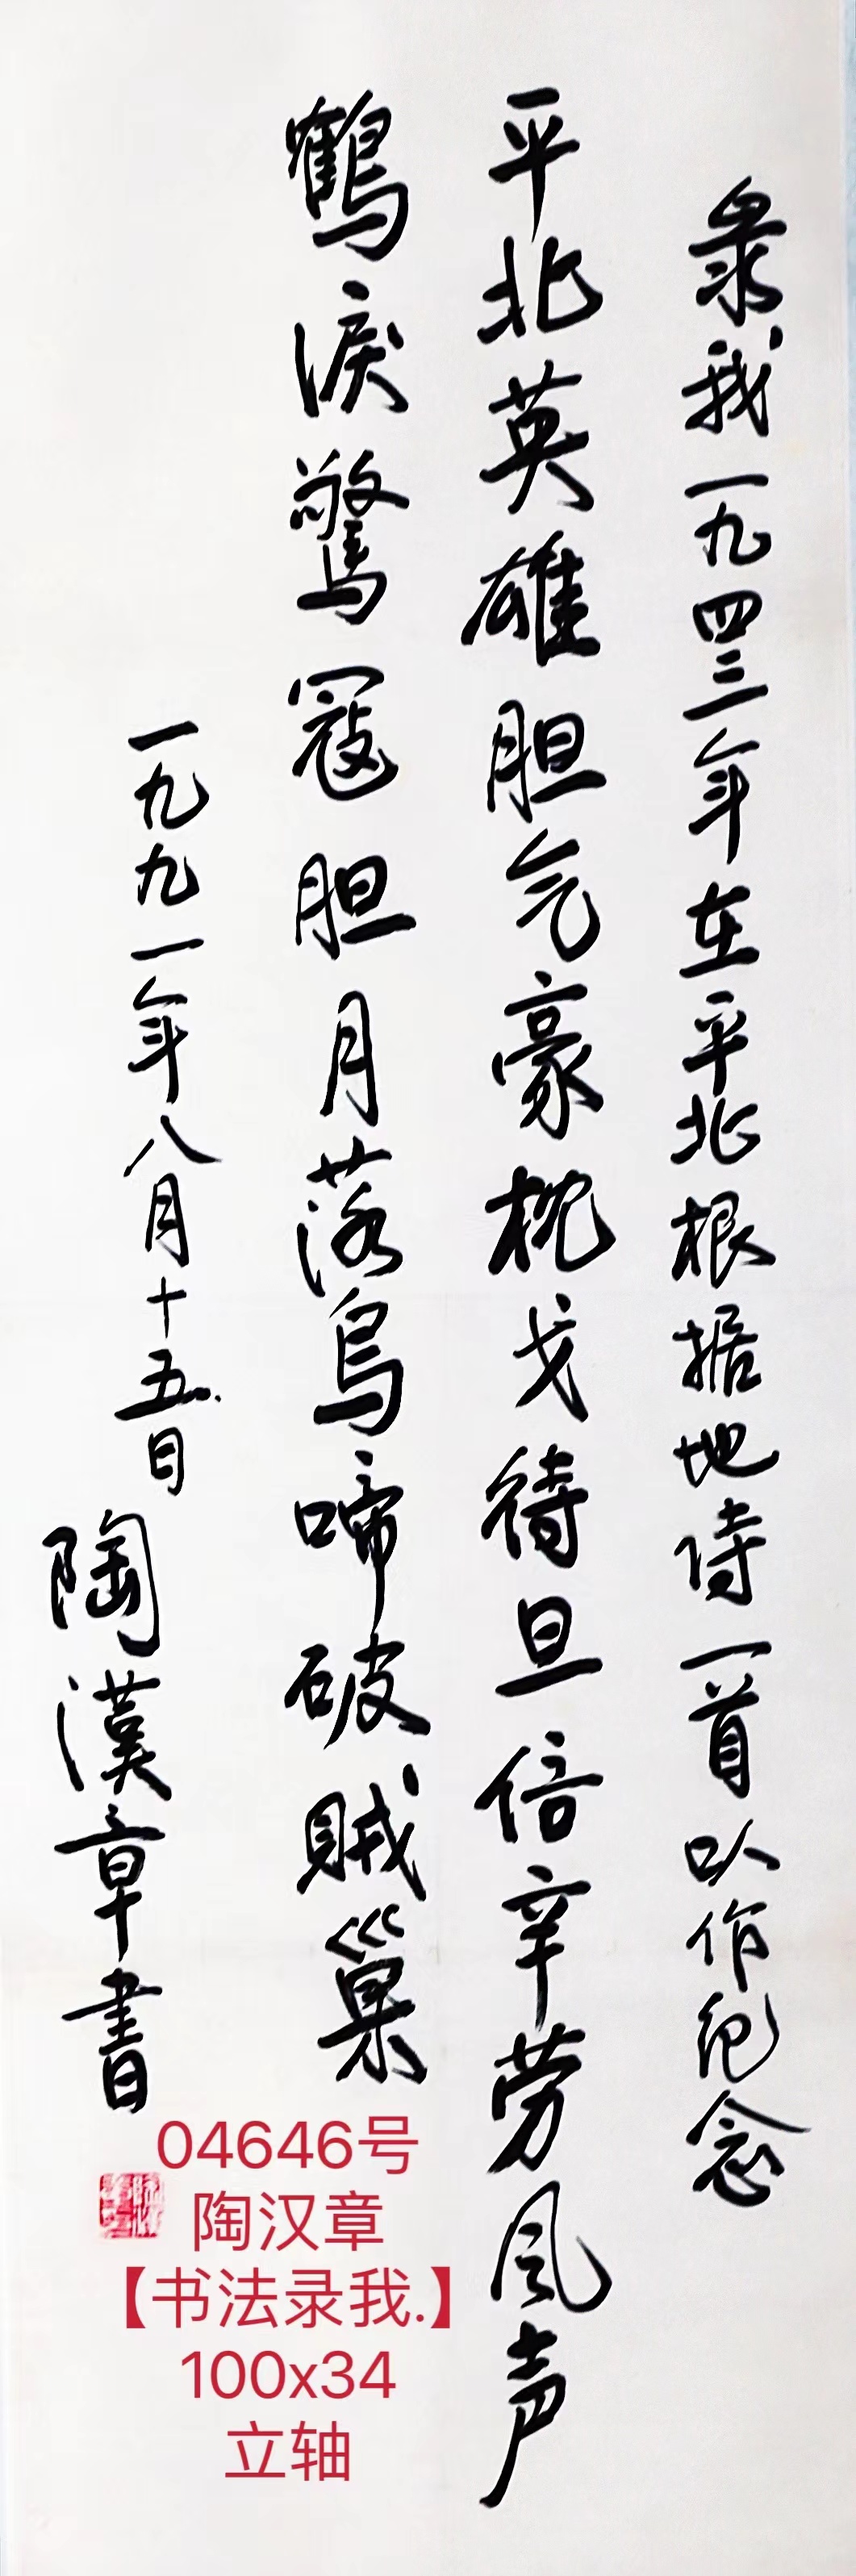 录我一九四三年在平北根据地诗一首以作纪念
平北英雄胆气豪枕戈待旦倍辛劳风声
鹤淚驚寇胆月落鸟啼破贼巢
一九九一年八月十五日
陶漢章書
04646号
陶汉章
【书法录我.】
100x34
立轴